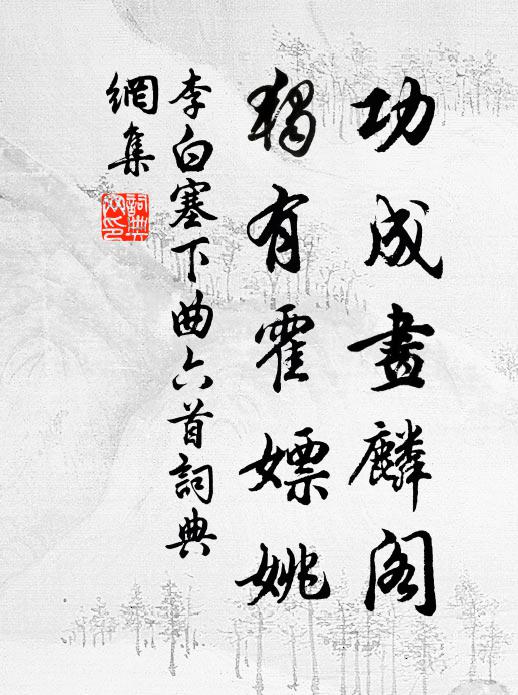 功成畫麟閣
獨有霍嫖姚
李白塞下曲六首詞典
網集
詞典網印